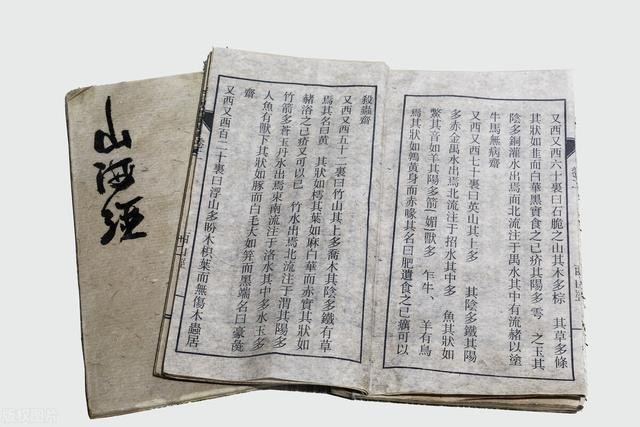 又西又西六十裏曰石脆之山其木多棕　其草多條
其狀如韭而白華黑實食之已疥其陽多　雩　之玉其
陰多銅灌水出焉而北流注于禺水其中有流赭以塗
牛馬無病齋
又西又西七十裏曰英山其上多　其陰多鐵其陽
多赤金禺水出焉北流注于招水其中多　魚其狀如
鱉其音如羊其陽多箭【媚】獸多　乍牛、羊有鳥
焉其狀如鶉黃身而赤喙其名曰肥遺食之已癘可以
殺蟲齋
又西又西五十二裏曰竹山其上多喬木其陰多鐵有草
焉其名曰黃　其狀如樗其葉如麻白華而赤實其狀如
赭浴之已疥又可以已　竹水出焉北流注于渭其陽多
竹箭多蒼玉丹水出焉東南流注于洛水其中多水玉多
人魚有獸下其狀如豚而白毛大如笄而黑端名曰豪彘
齋
又西又西百二十裏曰浮山多盼木枳葉而無傷木蟲居
西山經
山海經
版权图片